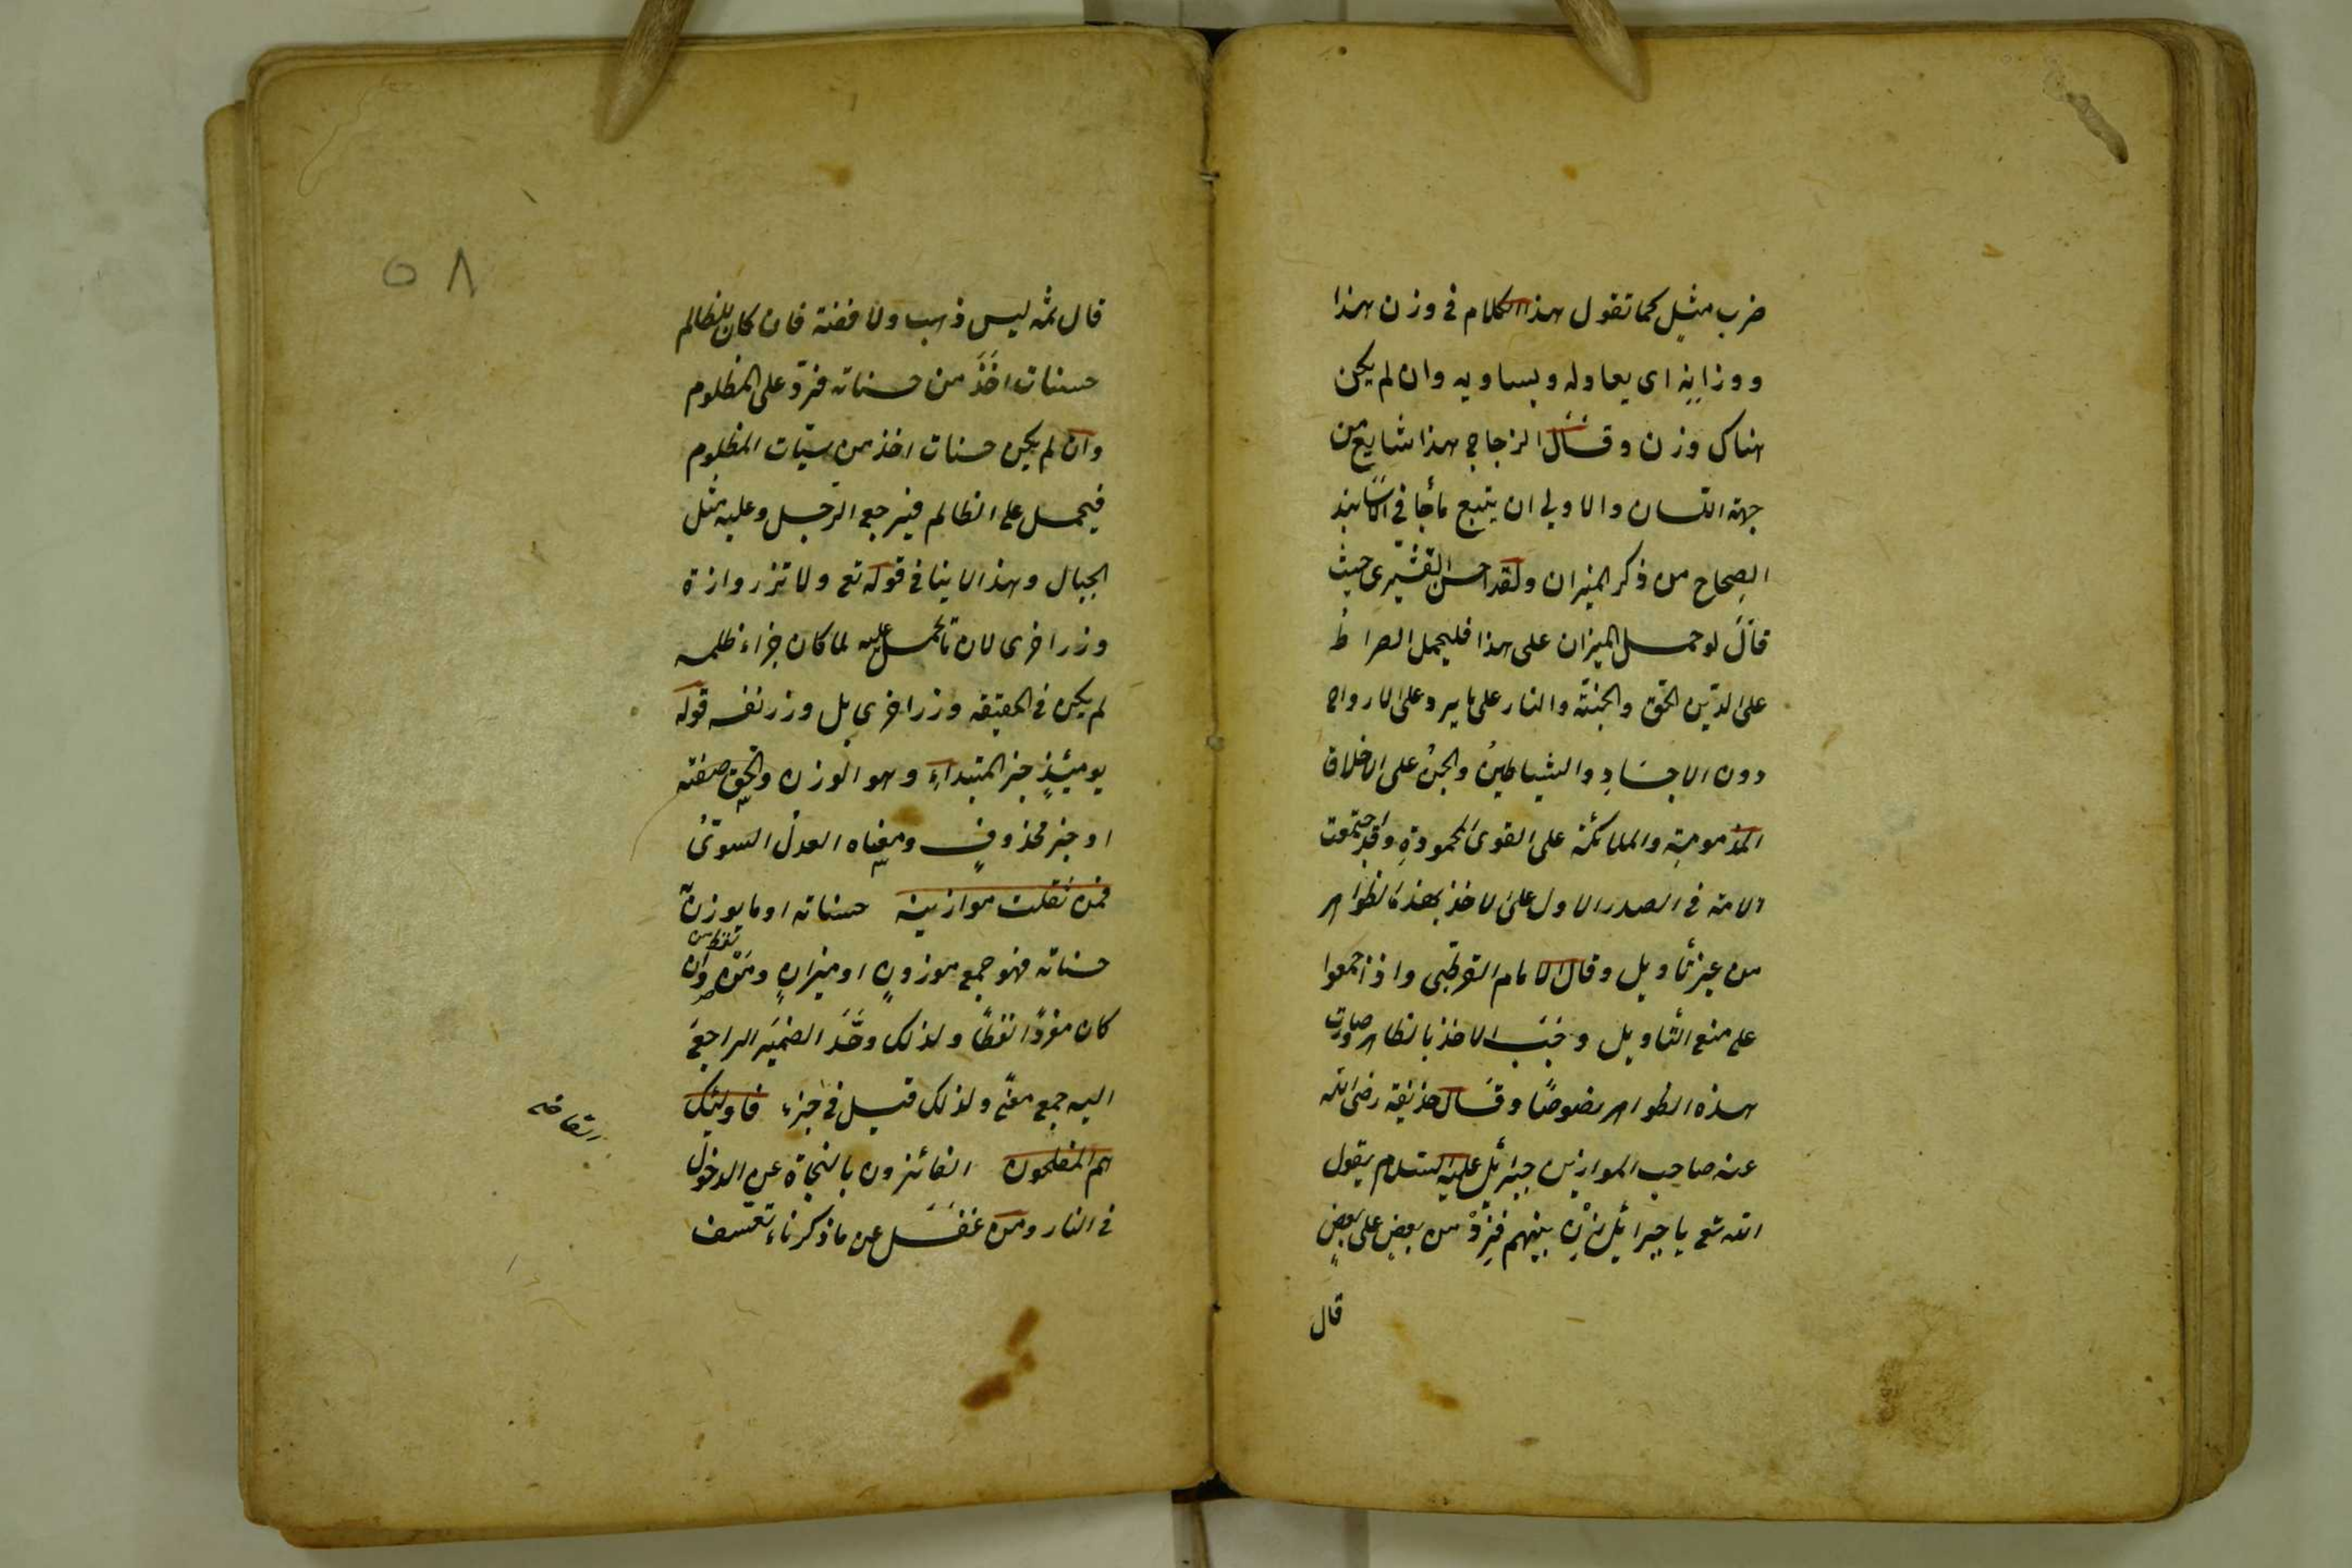 ضرب مثلٍ كما تقول هذا الكلام في وزن هذا
ووزانه اى يعادله ويساويه وان لم يكن
هناك وزن وقال الزجاج هذا شايع من
جهة اللسان والاولى ان يتبع ما جا في الاسانيد
الصحاح من ذكر الميزان ولقد احسن القشيرى حيث
قال لو حمل الميزان على هذا فليحمل الصراط
على الدين الحق والجنة والنار على ما يرد على الارواح
دون الاجساد والشياطين والجن على الاخلاق
المذمومة والملائكة على القوى المحمودة وقد اجتمعت
الامة في الصدر الاول على الاخذ بهذه الظواهر
من غير تأويل وقال الامام القرطبى واذ اجمعوا
على منع التأويل وجب الاخذ بالظاهر وصارت
هذه الظواهر نصوصًا وقال حذيفة رضى الله
عنه صاحب الموازين جبرائل عليه السلام يقول
الله تع يا جبرائل زن بينهم فردّ من بعضٍ على بعضٍ
قال
٥٨
قال ثمه ليس ذهب ولا فضة فان كان للظالم
حسنات اخذ من حسناته فردّ على المظلوم
وان لم يكن حسنات اخذ من سيّات المظلوم
فيحمل على الظالم فيرجع الرجل وعليه مثل
الجبال وهذا لا ينافى قوله تع ولا تزر وازرة
وزر اخرى لان ما تحمل عليه لما كان جزاء ظلمه
لم يكن في الحقيقه وزر اخرى بل وزر نفسه قوله
يومئذٍ خبر المبتداء وهو الوزن والحق صفته
او خبر محذوفٍ ومعناه العدل السوىّ
فمن ثقلت موازينه حسناته او ما يوزن به
حسناته فهو جمع موزونٍ او ميزانٍ ومن وان
كان مفردًا لفظًا ولذلك وحّد الضمير الراجع
اليه جمع معنًى ولذلك قيل في خبره فاولئك
هم المفلحون الفائزون بالنجاة عن الدخول
في النار ومن غفل عن ما ذكرناه تعسف